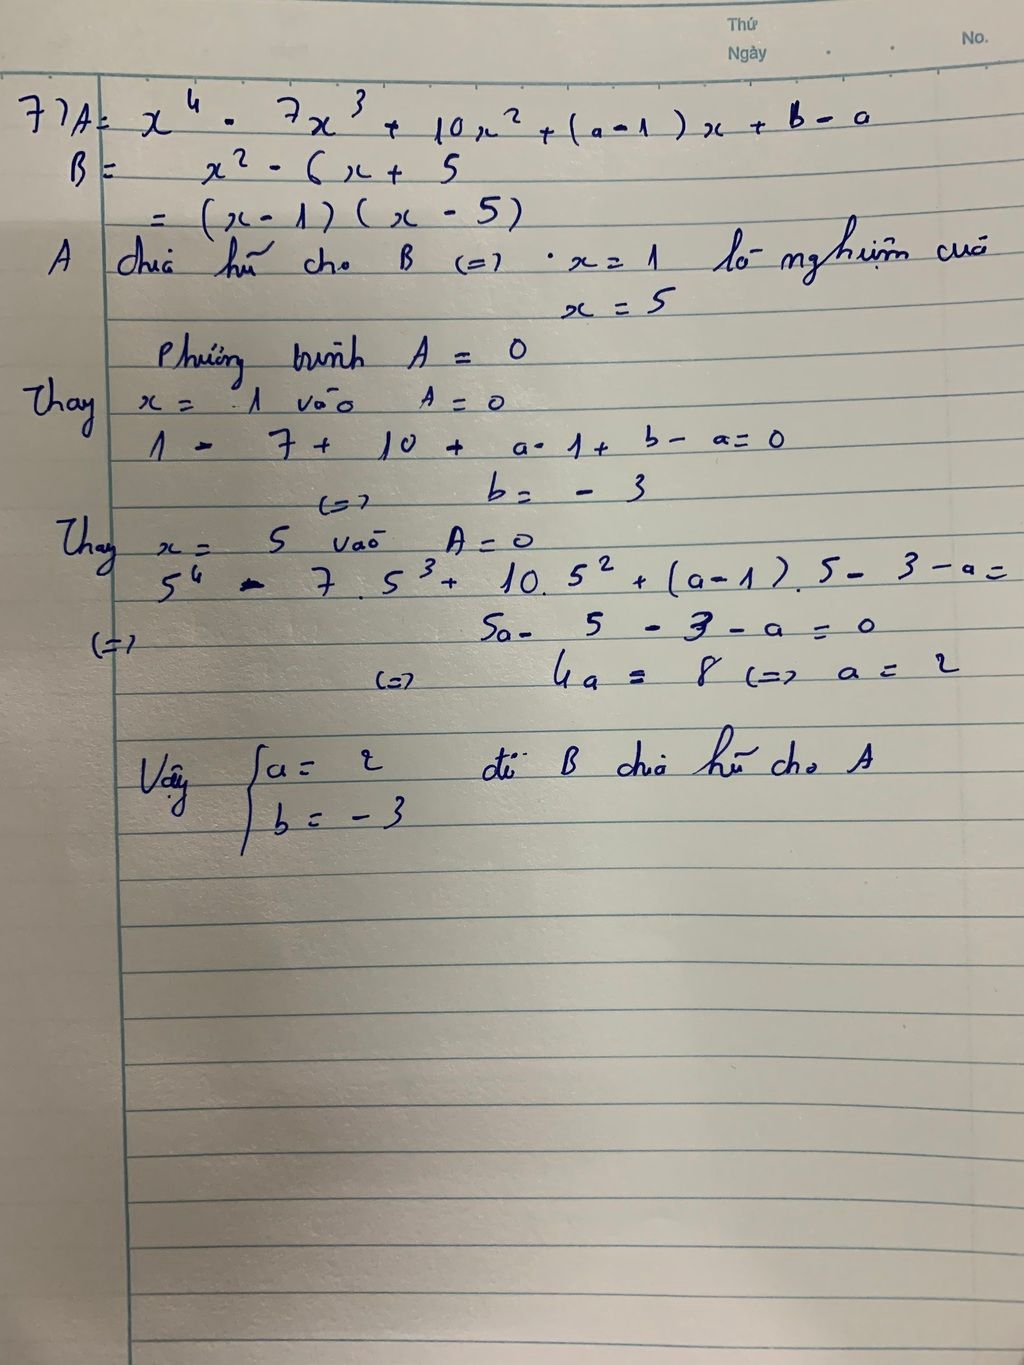 Thứ
Ngày . . No.
7) A = x⁴ - 7x³ + 10x² + (a-1)x + b - a
B = x² - 6x + 5
= (x - 1)(x - 5)
A chia hết cho B <=> x = 1 là nghiệm của
x = 5
Phương trình A = 0
Thay x = 1 vào A = 0
1 - 7 + 10 + a - 1 + b - a = 0
<=> b = - 3
Thay x = 5 vào A = 0
5⁴ - 7 . 5³ + 10. 5² + (a-1). 5 - 3 - a =
<=> 5a - 5 - 3 - a = 0
<=> 4a = 8 <=> a = 2
Vậy { a = 2 để B chia hết cho A
b = - 3